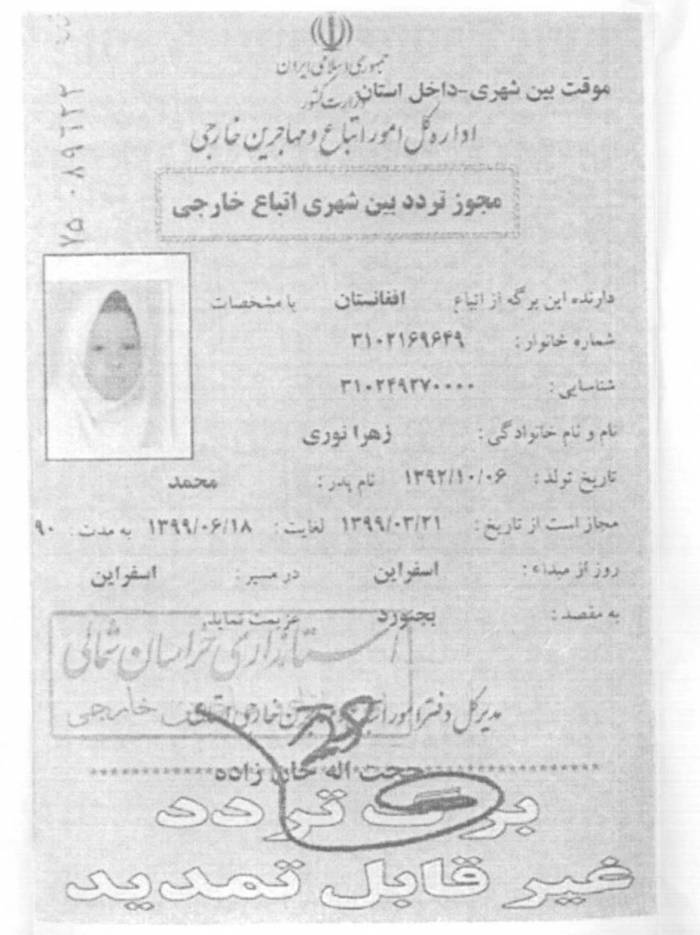 جمهوری اسلامی ایران
موقت بین شهری-داخل استان
وزارت کشور
اداره کل امور اتباع و مهاجرین خارجی
۷۵ ۰۸۹۶۲۲
مجوز تردد بین شهری اتباع خارجی
دارنده این برگه از اتباع افغانستان با مشخصات
شماره خانوار : ۳۱۰۲۱۶۹۶۴۹
شناسایی : ۳۱۰۲۴۹۲۷۰۰۰۰
نام و نام خانوادگی : زهرا نوری
تاریخ تولد : ۱۳۹۲/۱۰/۰۶ نام پدر : محمد
مجاز است از تاریخ : ۱۳۹۹/۰۳/۲۱ لغایت : ۱۳۹۹/۰۶/۱۸ به مدت : ۹۰
روز از مبداء : اسفراین در مسیر : اسفراین
به مقصد : بجنورد عزیمت نماید.
استانداری خراسان شمالی
مدیرکل دفتر امور اتباع و مهاجرین خارجی استانداری
خارجی
حجت اله خان زاده
برگ تردد
غیر قابل تمدید